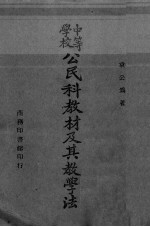 中等
學校
公民科教材及其教學法
商務印書館印行